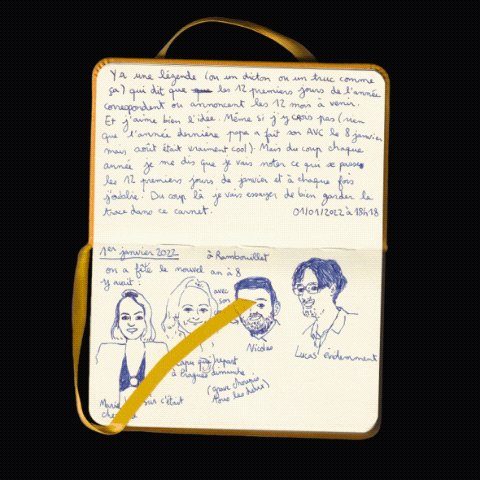 Y a une légende (ou un dicton ou un truc comme
ça) qui dit que les 12 premiers jours de l'année
correspondent ou annoncent les 12 mois à venir.
Et j'aime bien l'idée. Même si j'y crois pas (rien
que l'année dernière papa a fait son AVC le 8 janvier
mais août était vraiment cool). Mais du coup chaque
année je me dis que je vais noter ce qui se passe
les 12 premiers jours de janvier et à chaque fois
j'oublie. Du coup là je vais essayer de bien garder la
trace dans ce carnet. 01/01/2022 à 18h18
1er janvier 2022 à Rambouillet
on a fêté le nouvel an à 8
Y avait :
avec
son
Nicolas
Lucas évidemment
repart
à Prague dimanche
(grave chourie
Marie sur c'était